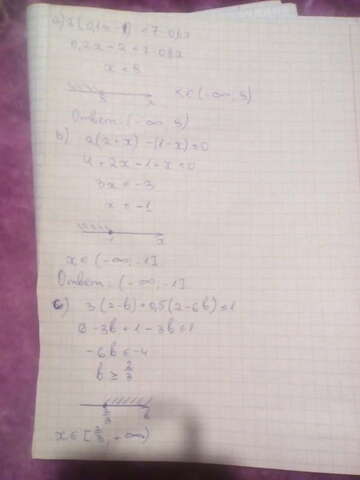 0,2x - 2 < 7 - 0,8x
x < 9
9 x x ∈ (-∞; 9)
Ответ: (-∞; 9)
b) 2(2+x) - (1-x) ≤ 0
4 + 2x - 1 + x ≤ 0
3x ≤ -3
x ≤ -1
x
x ∈ (-∞; -1]
Ответ: (-∞; -1]
c) 3(2-b) + 0,5(2-6b) ≤ 1
6 - 3b + 1 - 3b ≤ 1
-6b ≤ -4
b ≥ 2/3
2/3 b
x ∈ [2/3; +∞)